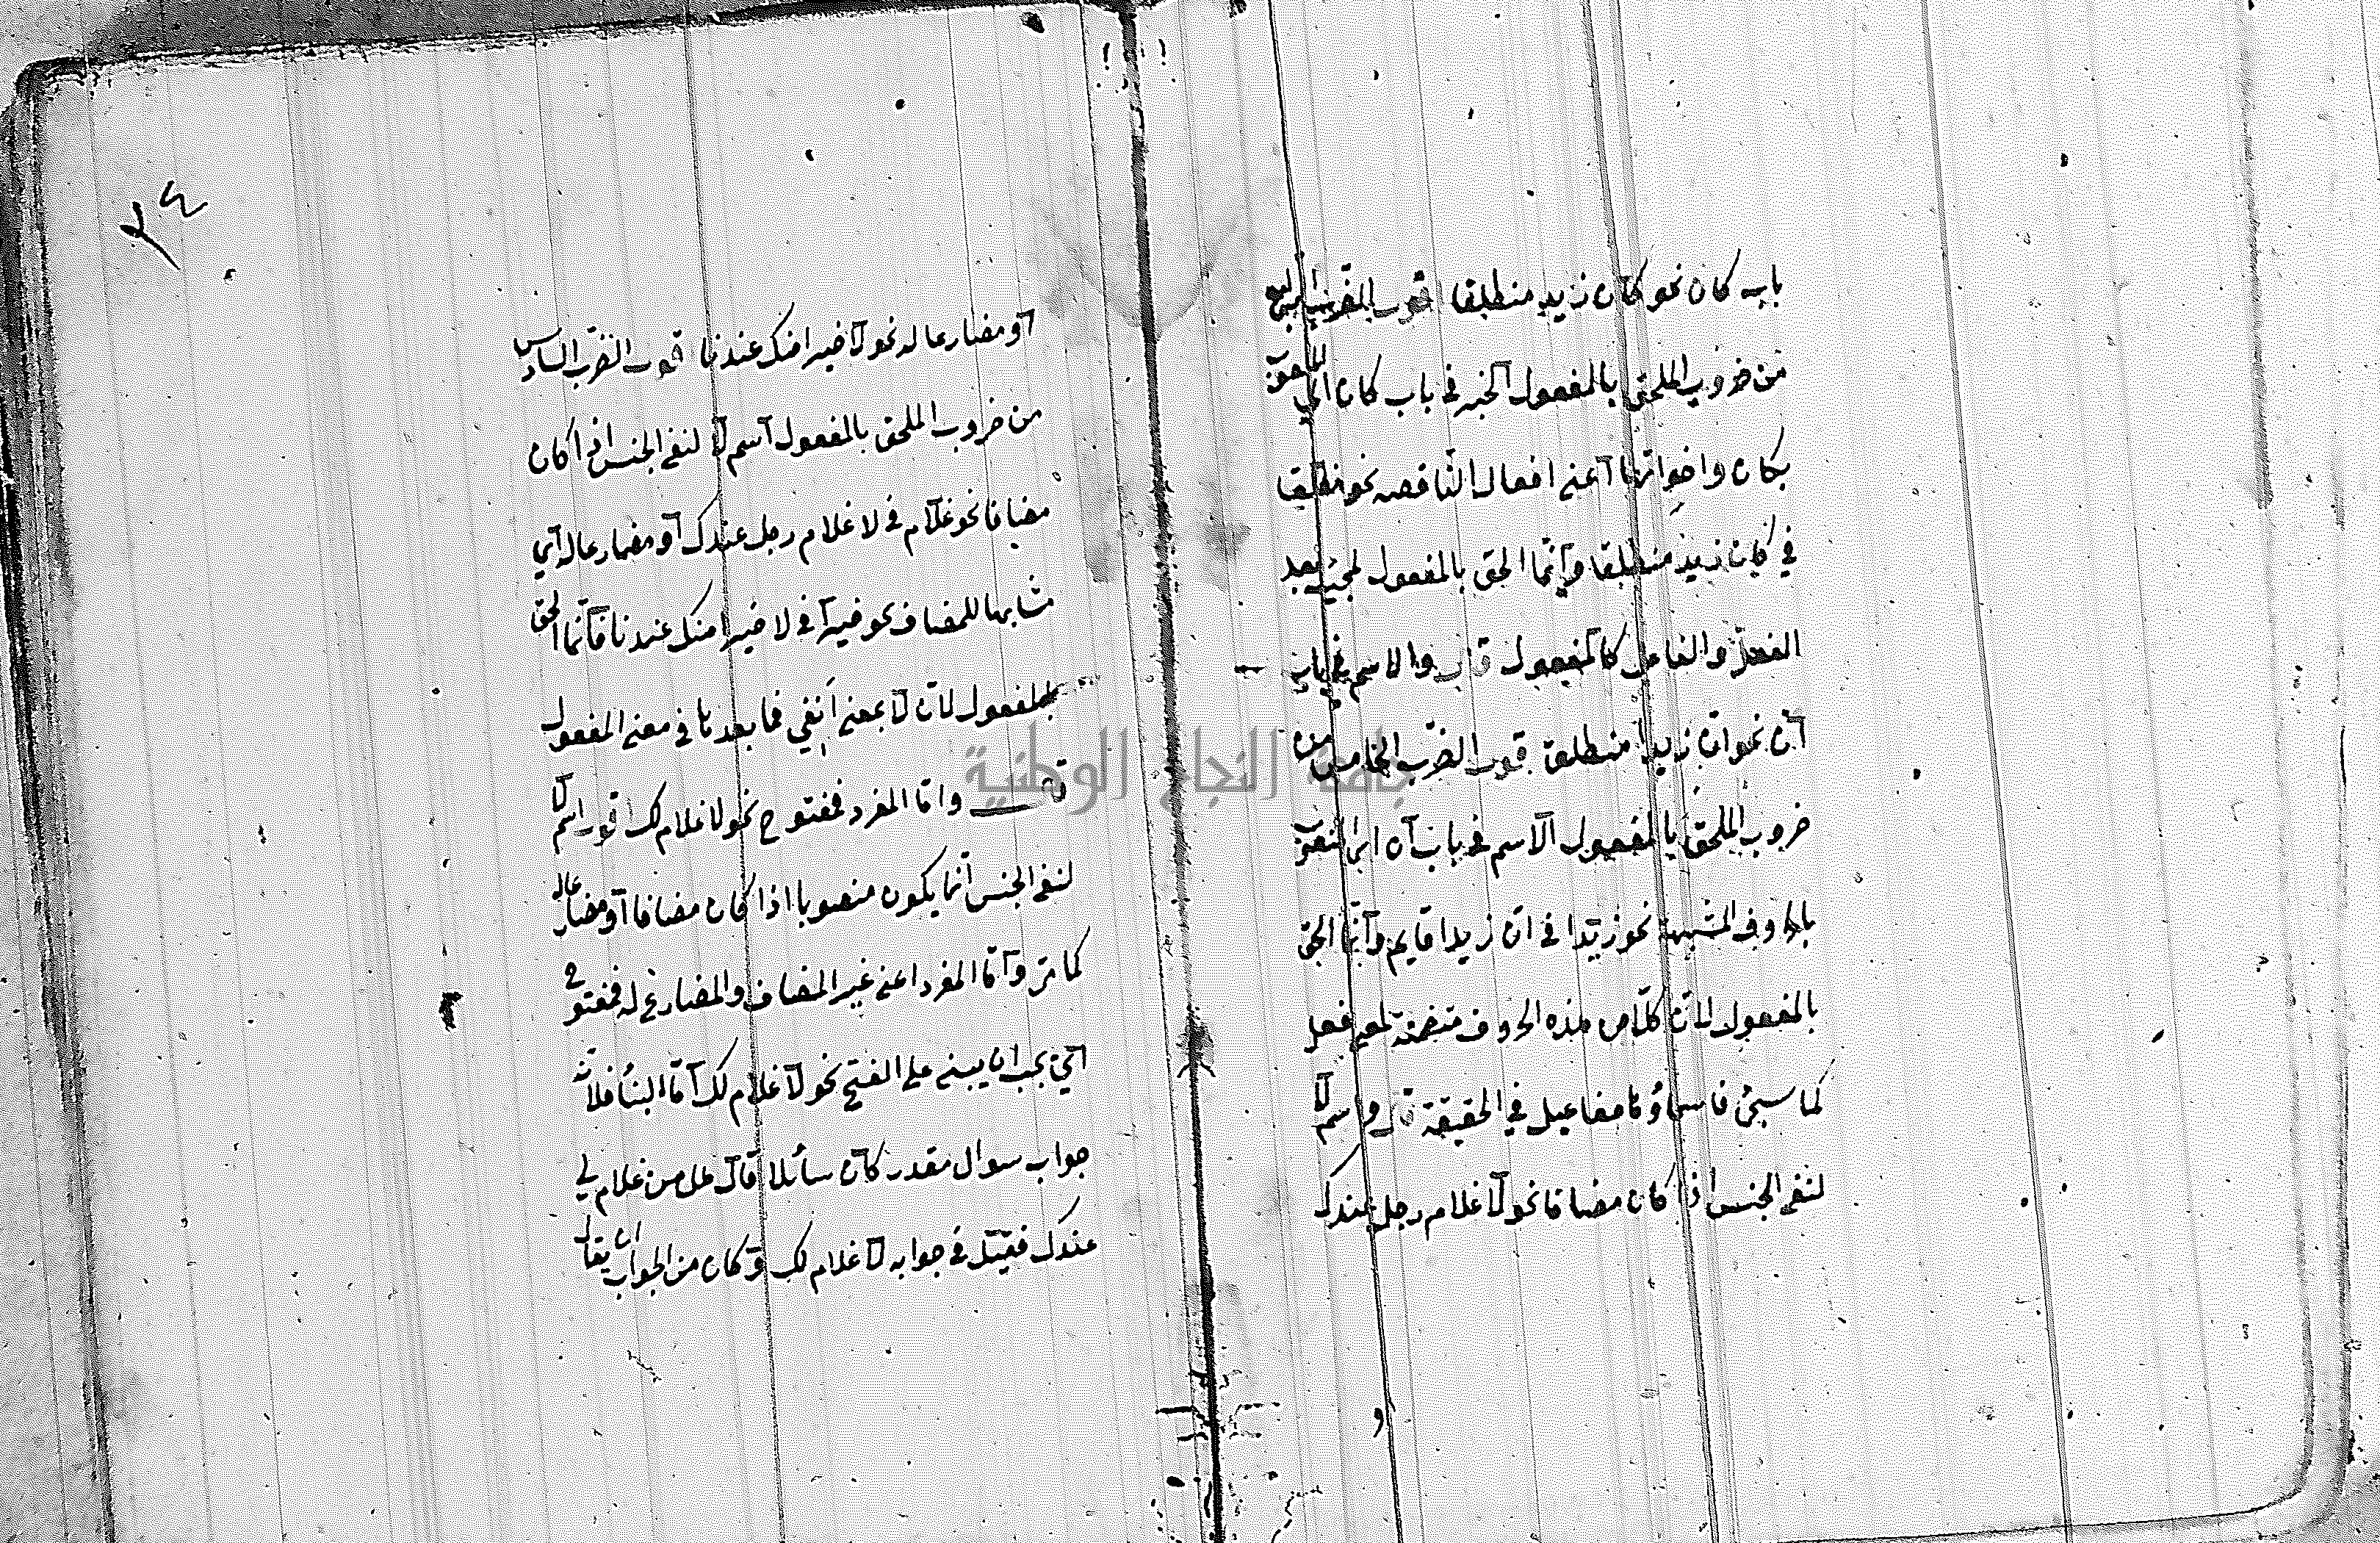 باب كان نحو كان زيد منطلقا اقول الضرب الرابع
من ضروب الملحق بالمفعول الخبر في باب كان اي المنصوب
بكان واخواتها اعني افعال الناقصه نحو منطلقا
في كان زيد منطلقا وانما الحق بالمفعول لمجيئه بعد
الفعل والفاعل كالمفعول قال والاسم في باب
ان نحو ان زيدا منطلق قوله الضرب الخامس من
ضروب الملحق بالمفعول الاسم في باب ان اي المنصوب
بالحروف المشبهة نحو زيدا في ان زيدا قايم وانما الحق
بالمفعول لان كلا من هذه الحروف متضمنة لمعنى فعل
كما سيجئ فاسماؤها مفاعيل في الحقيقة قال واسم لا
لنفى الجنس اذا كان مضافا نحو لا غلام رجل عندك
٢٤
او مضارعا له نحو لا خيرا منك عندنا قوله الضرب السادس
من ضروب الملحق بالمفعول اسم لا لنفى الجنس اذا كان
مضافا نحو غلام في لا غلام رجل عندك او مضارعا له اي
مشابها للمضاف نحو خيرا في لا خيرا منك عندنا فانما الحق
بالمفعول لان لا بمعنى انفي فما بعدها في معنى المفعول
قال واما المفرد فمفتوح نحو لا غلام لك قوله اسم لا
لنفى الجنس انما يكون منصوبا اذا كان مضافا او مضارعا له
كما مر واما المفرد اعنى غير المضاف والمضارع له فمفتوح
اي يجب ان يبنى على الفتح نحو لا غلام لك اما البناء فلانه
جواب سوال مقدر كان سائلا قال هل من غلام لي
عندك فقيل في جوابه لا غلام لك وكان من الجواب ان يقال
جامعة النجاح الوطنية